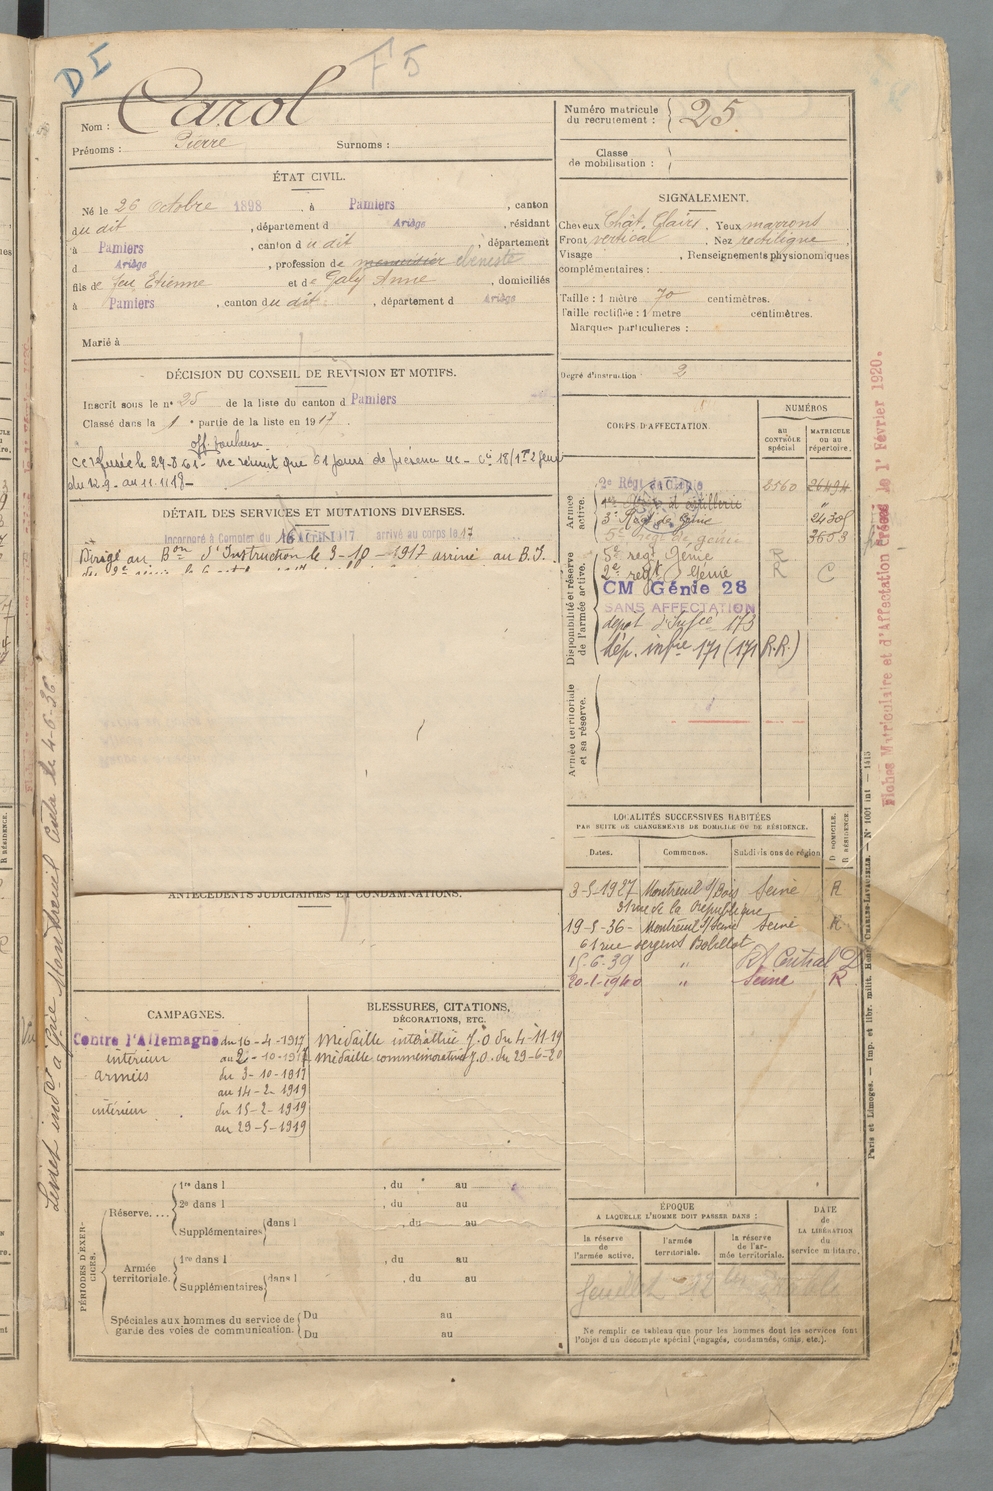 DI
F5
Nom : Carol
Prénoms : Pierre Surnoms :
Numéro matricule du recrutement : 25
Classe de mobilisation :
ÉTAT CIVIL.
Né le 26 octobre 1898, à Pamiers, canton
du dit, département d Ariège, résidant
à Pamiers, canton du dit, département
d Ariège, profession de menuisier ébéniste
fils de feu Etienne et de Galy Anne, domiciliés
à Pamiers, canton du dit, département d Ariège
Marié à
SIGNALEMENT.
Cheveux Chât. Clairs. Yeux marrons
Front vertical. Nez rectiligne,
Visage, Renseignements physionomiques
complémentaires :
Taille : 1 mètre 70 centimètres.
Taille rectifiée : 1 mètre centimètres.
Marques particulières :
Degré d'instruction : 2
DÉCISION DU CONSEIL DE RÉVISION ET MOTIFS.
Inscrit sous le n° 25 de la liste du canton d Pamiers
Classé dans la 1e partie de la liste en 1917
off. Toulouse
le 29-8-61 - ne réunit que 61 jours de présence
du 12.9. au 11.11.18 -
DÉTAIL DES SERVICES ET MUTATIONS DIVERSES.
Incorporé à Compter du 16 Avril 1917 arrivé au corps le 17
Dirigé au Bon d'Instruction le 3-10-1917 arrivé au B.I.
CORPS D'AFFECTATION.
NUMÉROS
au CONTRÔLE spécial
MATRICULE ou au répertoire.
Armée active.
2e Régt du Génie 2560 26494
1er Régt d'artillerie "
3e Régt de Génie 24305
5e Régt de génie 3603
Disponibilité et réserve de l'armée active.
5e regt Génie R
2e regt Génie R C
CM Génie 28
SANS AFFECTATION
depot d'Infie 173
dép. infie 171 (171 R.R.)
Armée territoriale et sa réserve.
LOCALITÉS SUCCESSIVES HABITÉES
PAR SUITE DE CHANGEMENTS DE DOMICILE OU DE RÉSIDENCE.
Dates. Communes. Subdivisions de région D DOMICILE. R RÉSIDENCE.
3-5-1927 Montreuil s/Bois Seine R
31 rue de la République
19-5-36- Montreuil s/Seine Seine R
61 rue Sergent Bobillot
15.6.39 " Central D
20-1-1940 " Seine R
ANTÉCÉDENTS JUDICIAIRES ET CONDAMNATIONS.
CAMPAGNES.
Contre l'Allemagne du 16-4-1917
intérieur au 2-10-1917
armées du 3-10-1917
au 14-2-1919
intérieur du 15-2-1919
au 29-5-1919
BLESSURES, CITATIONS,
DÉCORATIONS, ETC.
Médaille interalliée J.O du 4-11-19
Médaille commémorative J.O. du 29-6-20
PÉRIODES D'EXERCICES.
Réserve....
1re dans l , du au
2e dans l , du au
Supplémentaires dans l , du au
Armée territoriale.
1re dans l , du au
Supplémentaires dans l , du au
Spéciales aux hommes du service de garde des voies de communication.
Du au
Du au
ÉPOQUE
A LAQUELLE L'HOMME DOIT PASSER DANS :
la réserve de l'armée active.
l'armée territoriale.
la réserve de l'armée territoriale.
DATE de LA LIBÉRATION du service militaire.
feuillet
Ne remplir ce tableau que pour les hommes dont les services font
l'objet d'un décompte spécial (engagés, condamnés, omis, etc.).
Fiches Matriculaire et d'Affectation Créées le 1er Février 1920.
Paris et Limoges. — Imp. et libr. milit. Henri CHARLES-LAVAUZELLE. — N° 1001 int — 1415
Montreuil le 4-6-36
Vu